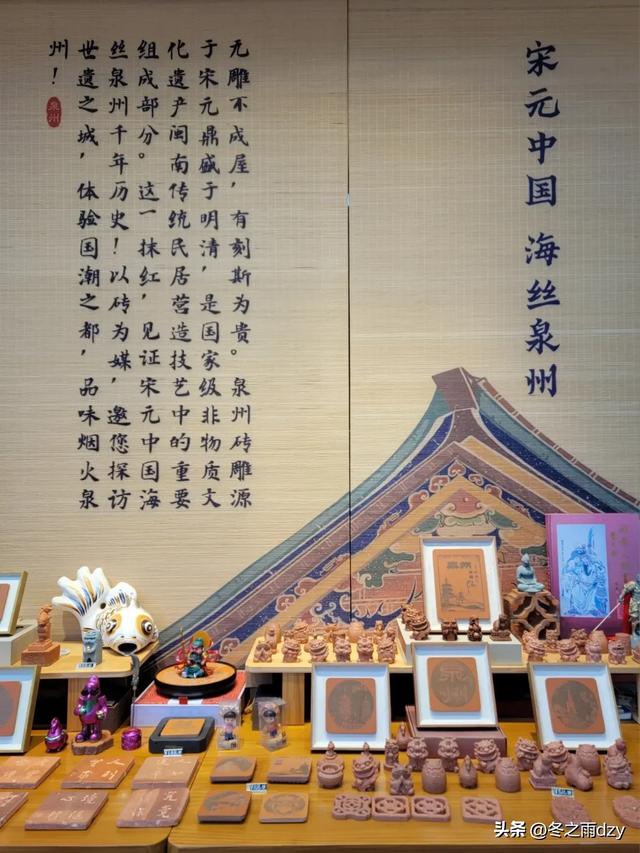 宋元中国 海丝泉州
无雕不成屋，有刻斯为贵。泉州砖雕源
于宋元鼎盛于明清，是国家级非物质文
化遗产闽南传统民居营造技艺中的重要
组成部分。这一抹红，见证宋元中国海
丝泉州千年历史！以砖为媒，邀您探访
世遗之城，体验国潮之都，品味烟火泉
州！
泉州
泉州
头条 @冬之雨dzy